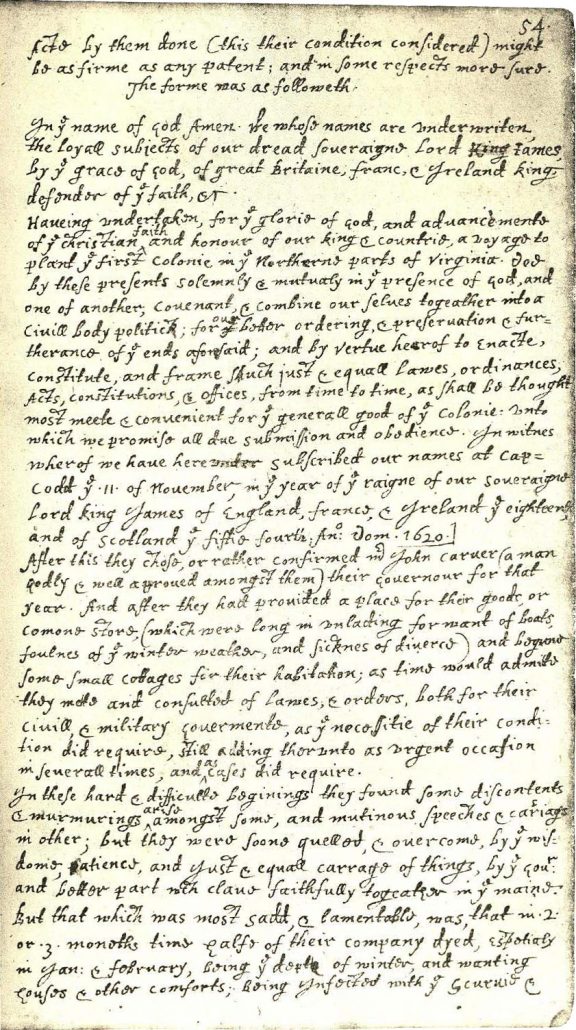 54.
Acte by them done (this their condition considered) might
be as firme as any patent; and in some respects more sure.
The forme was as followeth.
In yͤ name of God Amen. We whose names are underwriten,
the loyall subjects of our dread soveraigne Lord King James
by yͤ grace of God, of great Britaine, franc, & Ireland king,
defender of yͤ faith, &c
Haveing undertaken, for yͤ glorie of God, and advancemente
of yͤ christian faith and honour of our king & countrie, a voyage to
plant yͤ first colonie in yͤ Northerne parts of Virginia. Doe
by these presents solemnly & mutualy in yͤ presence of God, and
one of another, covenant, & combine our selves togeather into a
Civill body politick; for our better ordering, & preservation & fur-
therance of yͤ ends aforesaid; and by vertue hearof to Enacte,
constitute, and frame shuch just & equall lawes, ordinances,
Acts, constitutions, & offices, from time to time, as shall be thought
most meete & convenient for yͤ generall good of yͤ Colonie: unto
which we promise all due submission and obedience. In witnes
wherof we have hereunder subscribed our names at Cap=
Codd yͤ .11. of November, in yͤ year of yͤ raigne of our soveraigne
Lord King James of England, france, & Ireland yͤ eighteenth
and of Scotland yͤ fiftie fourth. Anͦ: Dom. 1620.]
After this they chose, or rather confirmed mͬ John Carver (a man
godly & well approved amongst them) their Governour for that
year. And after they had provided a place for their goods, or
comone store, (which were long in unlading for want of boats,
foulnes of yͤ winter weather, and sicknes of diverce) and begune
some small cottages for their habitation; as time would admitte
they mette and consulted of lawes, & orders, both for their
civill, & military Govermente, as yͤ necessitie of their condi-
tion did require, still adding therunto as urgent occasion
in severall times, and as cases did require.
In these hard & difficulte beginings they found some discontents
& murmurings arise amongst some, and mutinous speeches & cariags
in other; but they were soone quelled, & overcome, by yͤ wis-
dome, patience, and just & equall carrage of things, by yͤ Govͬ
and better part wͨͪ clave faithfully togeather in yͤ maine.
But that which was most sadd, & lamentable, was, that in .2.
or .3. moneths time halfe of their company dyed, espetialy
in Jan: & february, being yͤ depth of winter, and wanting
houses & other comforts; being Infected with yͤ Scurvie &